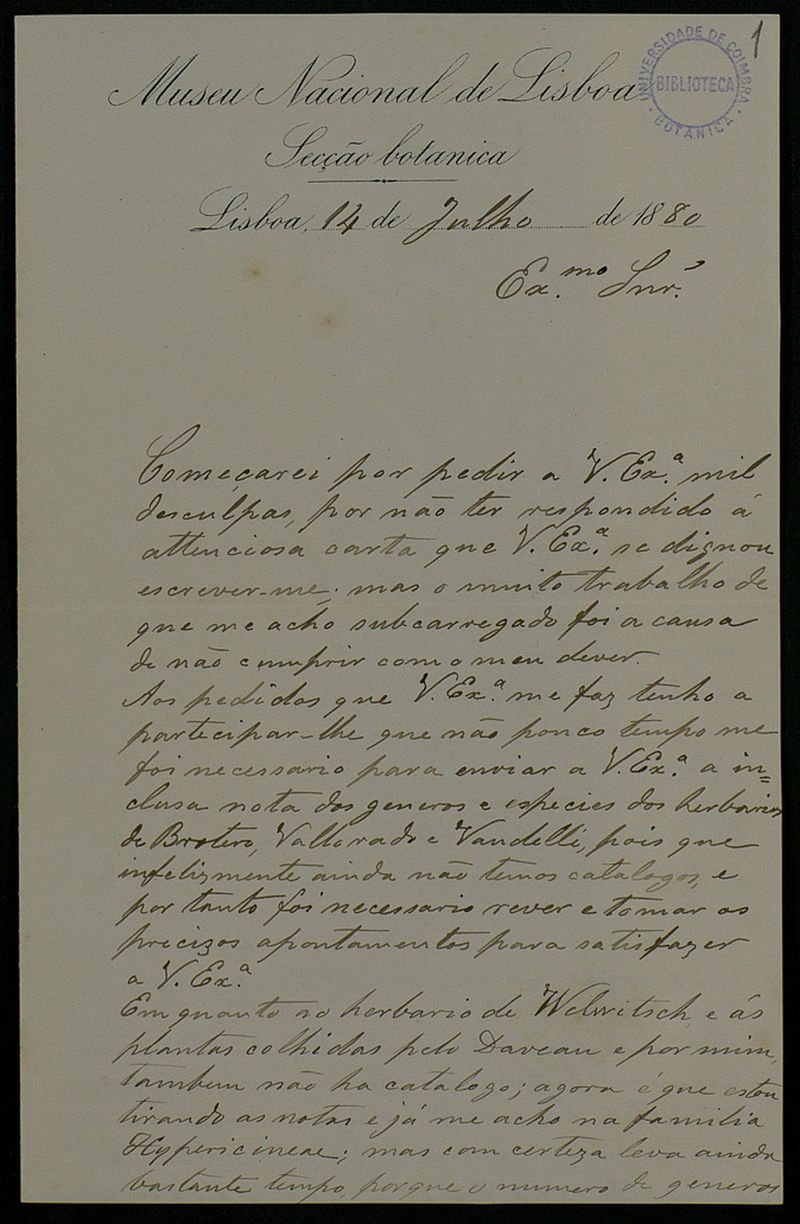 1
UNIVERSIDADE DE COIMBRA
BIBLIOTECA
BOTANICA
Museu Nacional de Lisboa
Secção botanica
Lisboa, 14 de Julho de 1880
Ex.mo Snr.
Começarei por pedir a V. Ex.ª mil
desculpas, por não ter respondido á
attenciosa carta que V. Ex.ª se dignou
escrever-me; mas o muito trabalho de
que me acho subcarregado foi a causa
de não cumprir com o meu dever.
Aos pedidos que V. Ex.ª me faz tenho a
participar-lhe que não pouco tempo me
foi necessario para enviar a V. Ex.ª a in=
clusa nota dos generos e especies dos herbarios
de Brotero, Vallorado e Vandelli, pois que
infelizmente ainda não temos catalogos, e
por tanto foi necessario rever e tomar os
precizos apontamentos para satisfazer
a V. Ex.ª
Em quanto ao herbario de Welwitsch, e ás
plantas colhidas pelo Daveau e por mim,
tambem não ha catalogo; agora é que estou
tirando as notas e já me acho na familia
Hypericineae; mas com certeza leva ainda
bastante tempo, porque o numero de generos